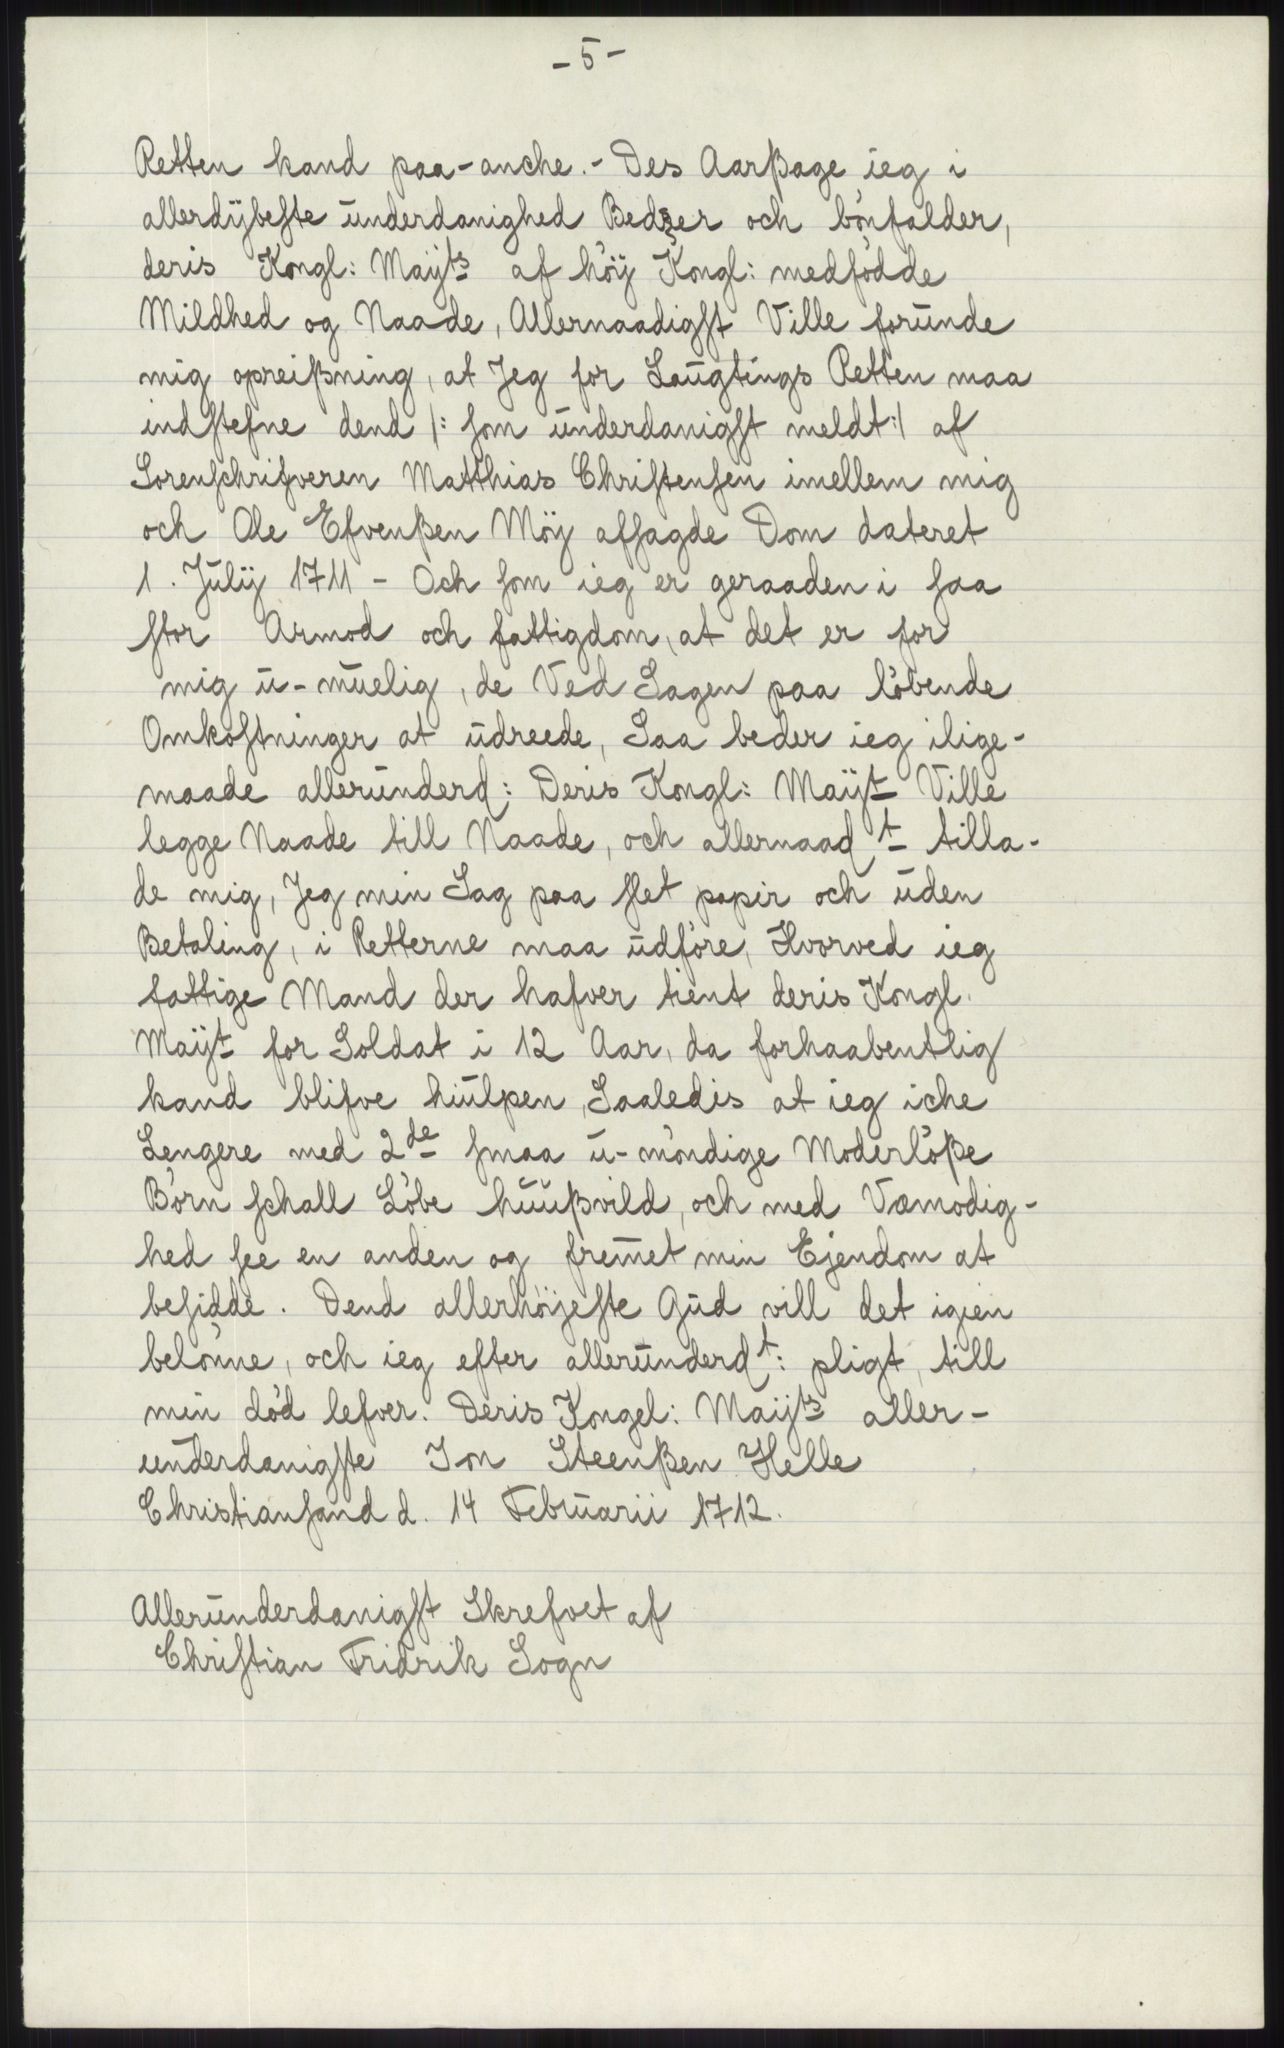 - 5 -
Retten kand paa-anche. - Des Aarßage ieg i
allerdÿbeste underdanighed Bedzer och bönfalder,
deris Kongl: Maÿts af höÿ Kongl: medfödde
Mildhed og Naade, Allernaadigst Ville forunde
mig opreißning, at Jeg for Laugtings Retten maa
indstefne dend /: som underdanigst meldt:/ af
Sorenschrifveren Matthias Christensen imellem mig
och Ole Efvenßen Möÿ afsagde Dom dateret
1. Julÿ 1711 - Och som ieg er geraaden i saa
stor Armod och fattigdom, at det er for
mig u-muelig, de Ved Sagen paa löbende
Omkostninger at udreede, Saa beder ieg ilige-
maade allerunderd: Deris Kongl: Maÿt Ville
legge Naade till Naade, och allernaadt tilla-
de mig, Jeg min Sag paa slet papir och uden
Betaling, i Retterne maa udföre, Hvorved ieg
fattige Mand der hafver tient deris Kongl.
Maÿt for Soldat i 12 Aar, da forhaabentlig
kand blifve hiulpen, Saaledis at ieg iche
Lengere med 2de smaa u-möndige Moderlöße
Börn schall Löbe huußvild, och med Væmodig-
hed see en anden og fremet min Ejendom at
besidde. Dend allerhöÿeste Gud vill det igien
belönne, och ieg efter allerunderdt: pligt, till
min död lefver. Deris Kongel: Maÿts aller-
underdanigste Jon Steenßen Helle
Christiansand d. 14 Februarii 1712.
Allerunderdanigst Skrefvet af
Christian Fridrik Sogn